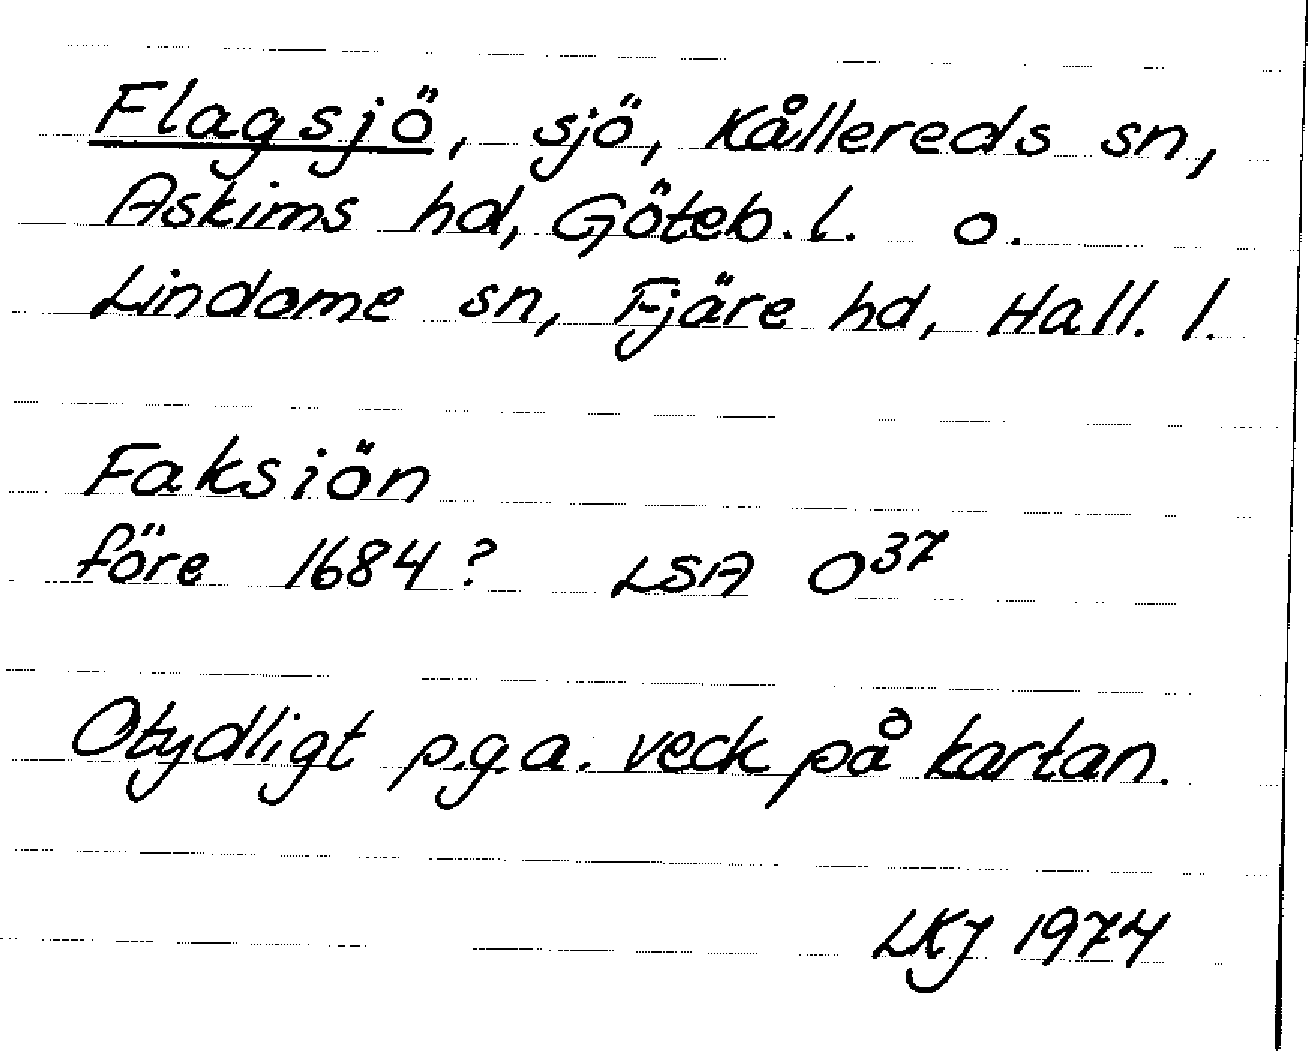 Flagsjö, sjö, Kållereds sn,
Askims hd, Göteb. l. o.
Lindome sn, Fjäre hd, Hall. l.
Faksiön
före 1684? LSA O37
Otydligt p.g.a. veck på kartan.
LKJ 1974